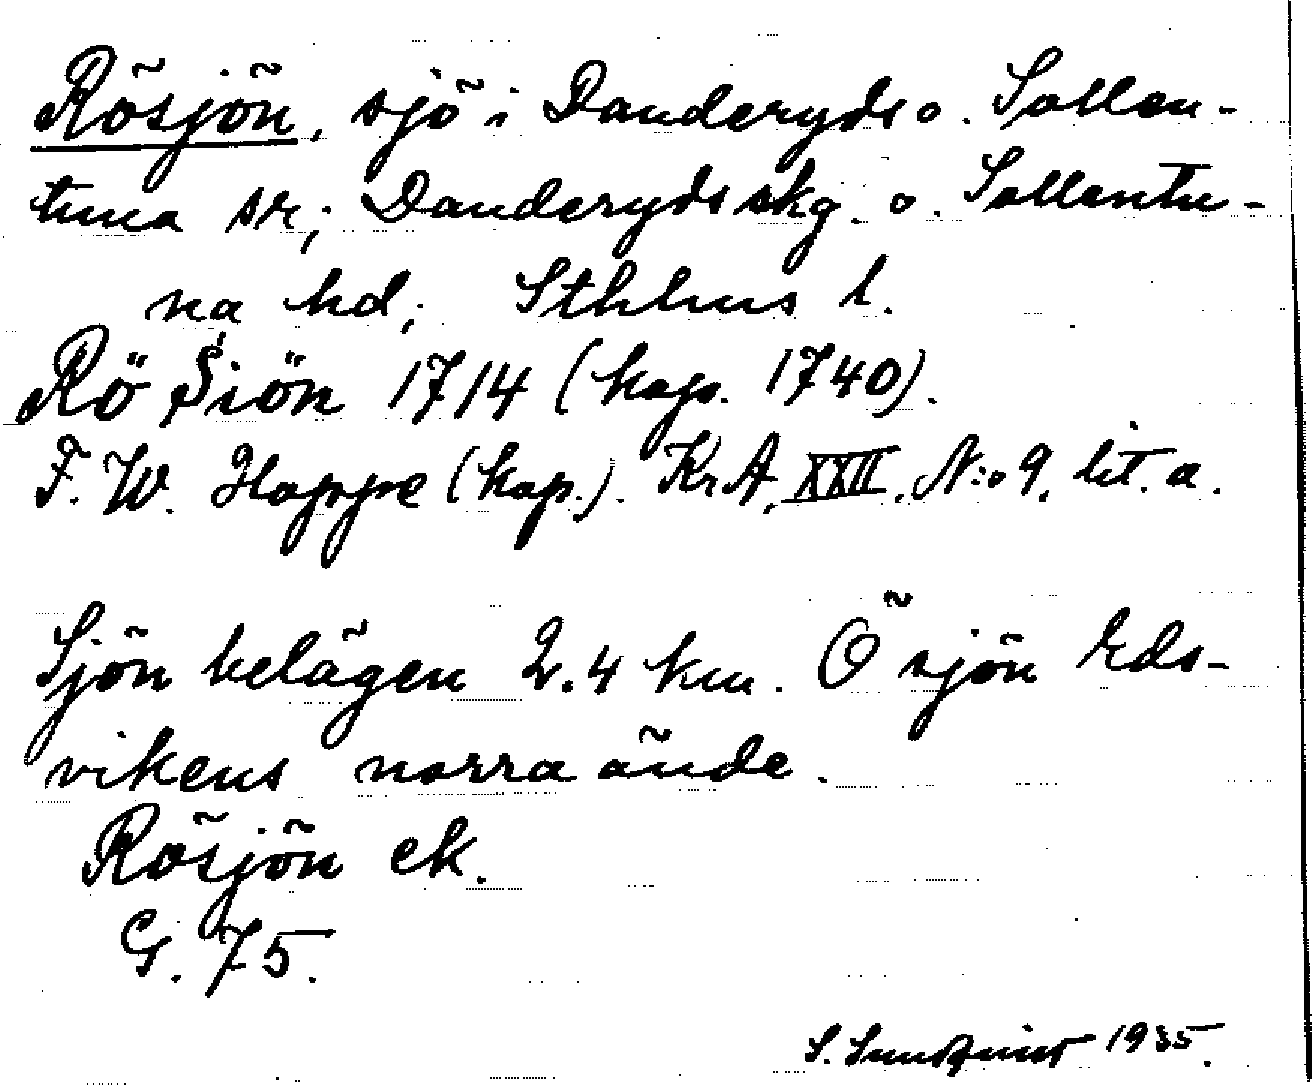 Rösjön, sjö i Danderyds o. Sollen-
tuna sr; Danderyds skg. o. Sollentu-
na hd; Sthlms l.
Rö Siön 1714 (kop. 1740).
F. W. Hoppe (kop.). KrA, XXII, N:o 9, lit. a.
Sjön belägen 2.4 km. Ö sjön Eds-
vikens norra ände.
Rösjön ek.
G. 75.
S. Sundquist 1935.